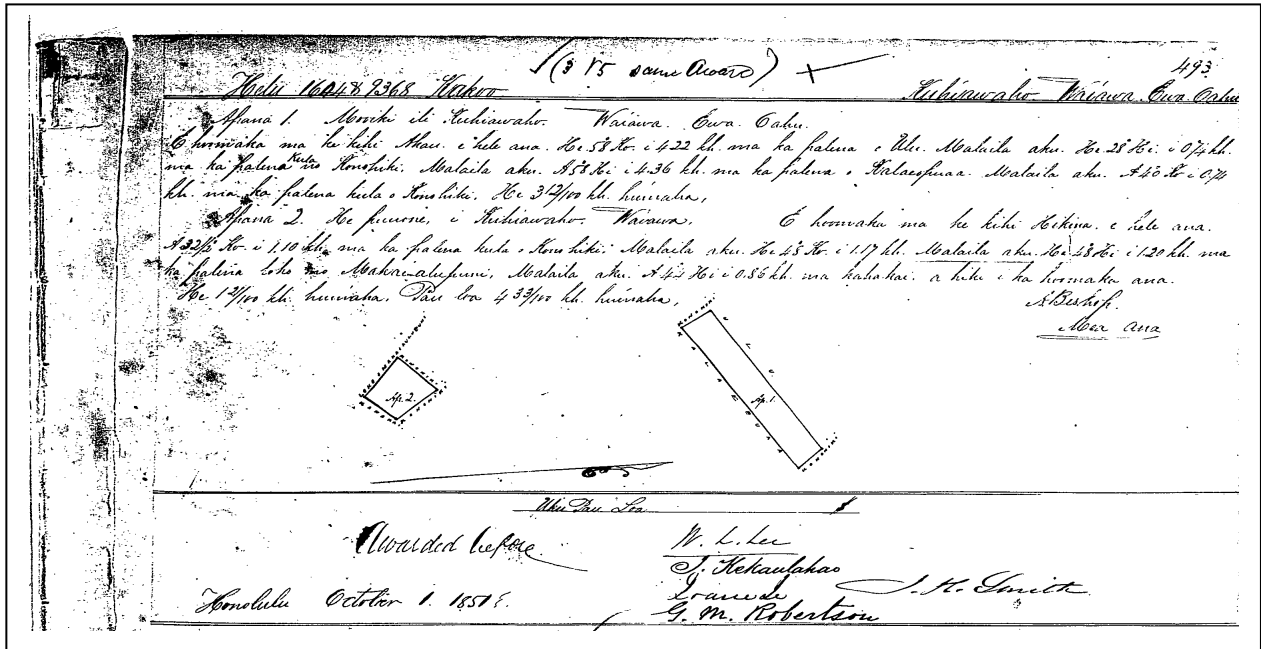 (3 & 5 same Award) +
493
Helu 1604 & 9368 Kakoo Kuhiawaho Waiawa. Ewa Oahu
Apana 1. Mooiki ili Kuhiawaho. Waiawa. Ewa. Oahu.
E hoomaka ma ke kihi Akau. e hele ana. He. 58 Ko. i 4.22 kh. ma ka palena o Uku. Malaila aku. He. 28 Hi. i 0.74 kh.
ma ka palena kula no Konohiki. Malaila aku. A 58 Hi i 4.36 kh. ma ka palena o Kalaeopuaa. Malaila aku. A 40 Ko i 0.74
kh. ma ka palena kula o Konohiki, He 3 12/100 kh. huinaha,
Apana 2. He puuone, i Kuhiawaho. Waiawa. E hoomaka ma ke kihi Hikina. e hele ana.
A 32½ Ko. i 1.10 kh. ma ka palena kula o Konohiki: Malaila aku. He. 48 Ko. i 1.17 kh. Malaila aku. He. 48 Hi i 1.20 kh. ma
ka palena loko no Malaila aku. A 44 Hi i 0.86 kh. ma kahakai. a hiki i ka hoomaka ana.
He 1 21/100 kh. huinaha. Pau loa 4 33/100 kh. huinaha,
A Bishop.
Mea ana
Ap. 2.
Ap. 1.
Uku Pau Loa
Awarded before
W. L. Lee
J. Kekaulahao
J. H. Smith
Honolulu October 1. 1851
G. M. Robertson